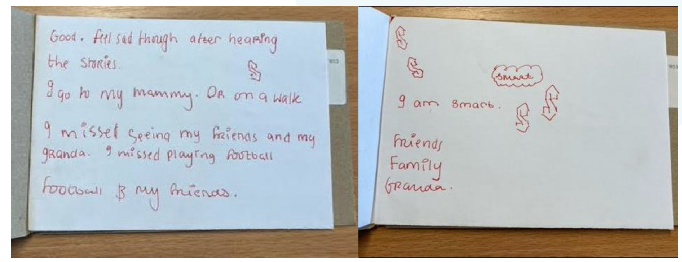 Good. feel sad though after hearing
the stories.
I go to my mammy. OR on a walk
I missed seeing my friends and my
granda. I missed playing football
Football & my friends.
smart
I am smart.
Friends
Family
Granda.